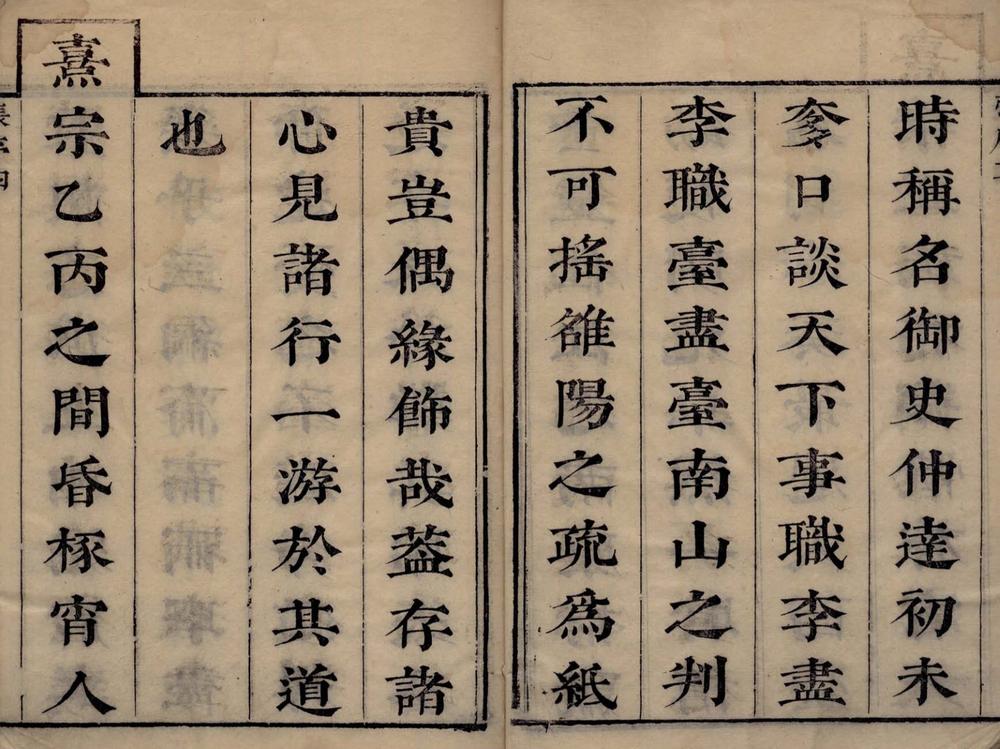 時稱名御史仲逹初未
嘗口談天下事職李盡
李職臺盡臺南山之判
不可搖雒陽之疏爲紙
貴豈偶緣飾哉葢存諸
心見諸行一游於其道
也
熹宗乙丙之間昏椓宵人